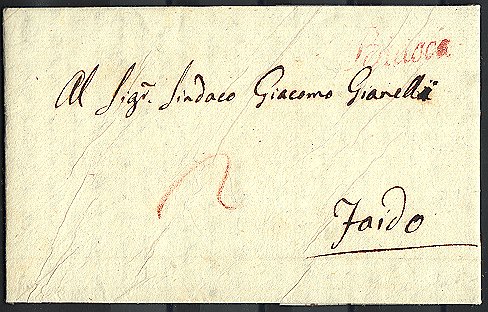 Al Sigr. Sindaco Giacomo Gianella
2
Faido